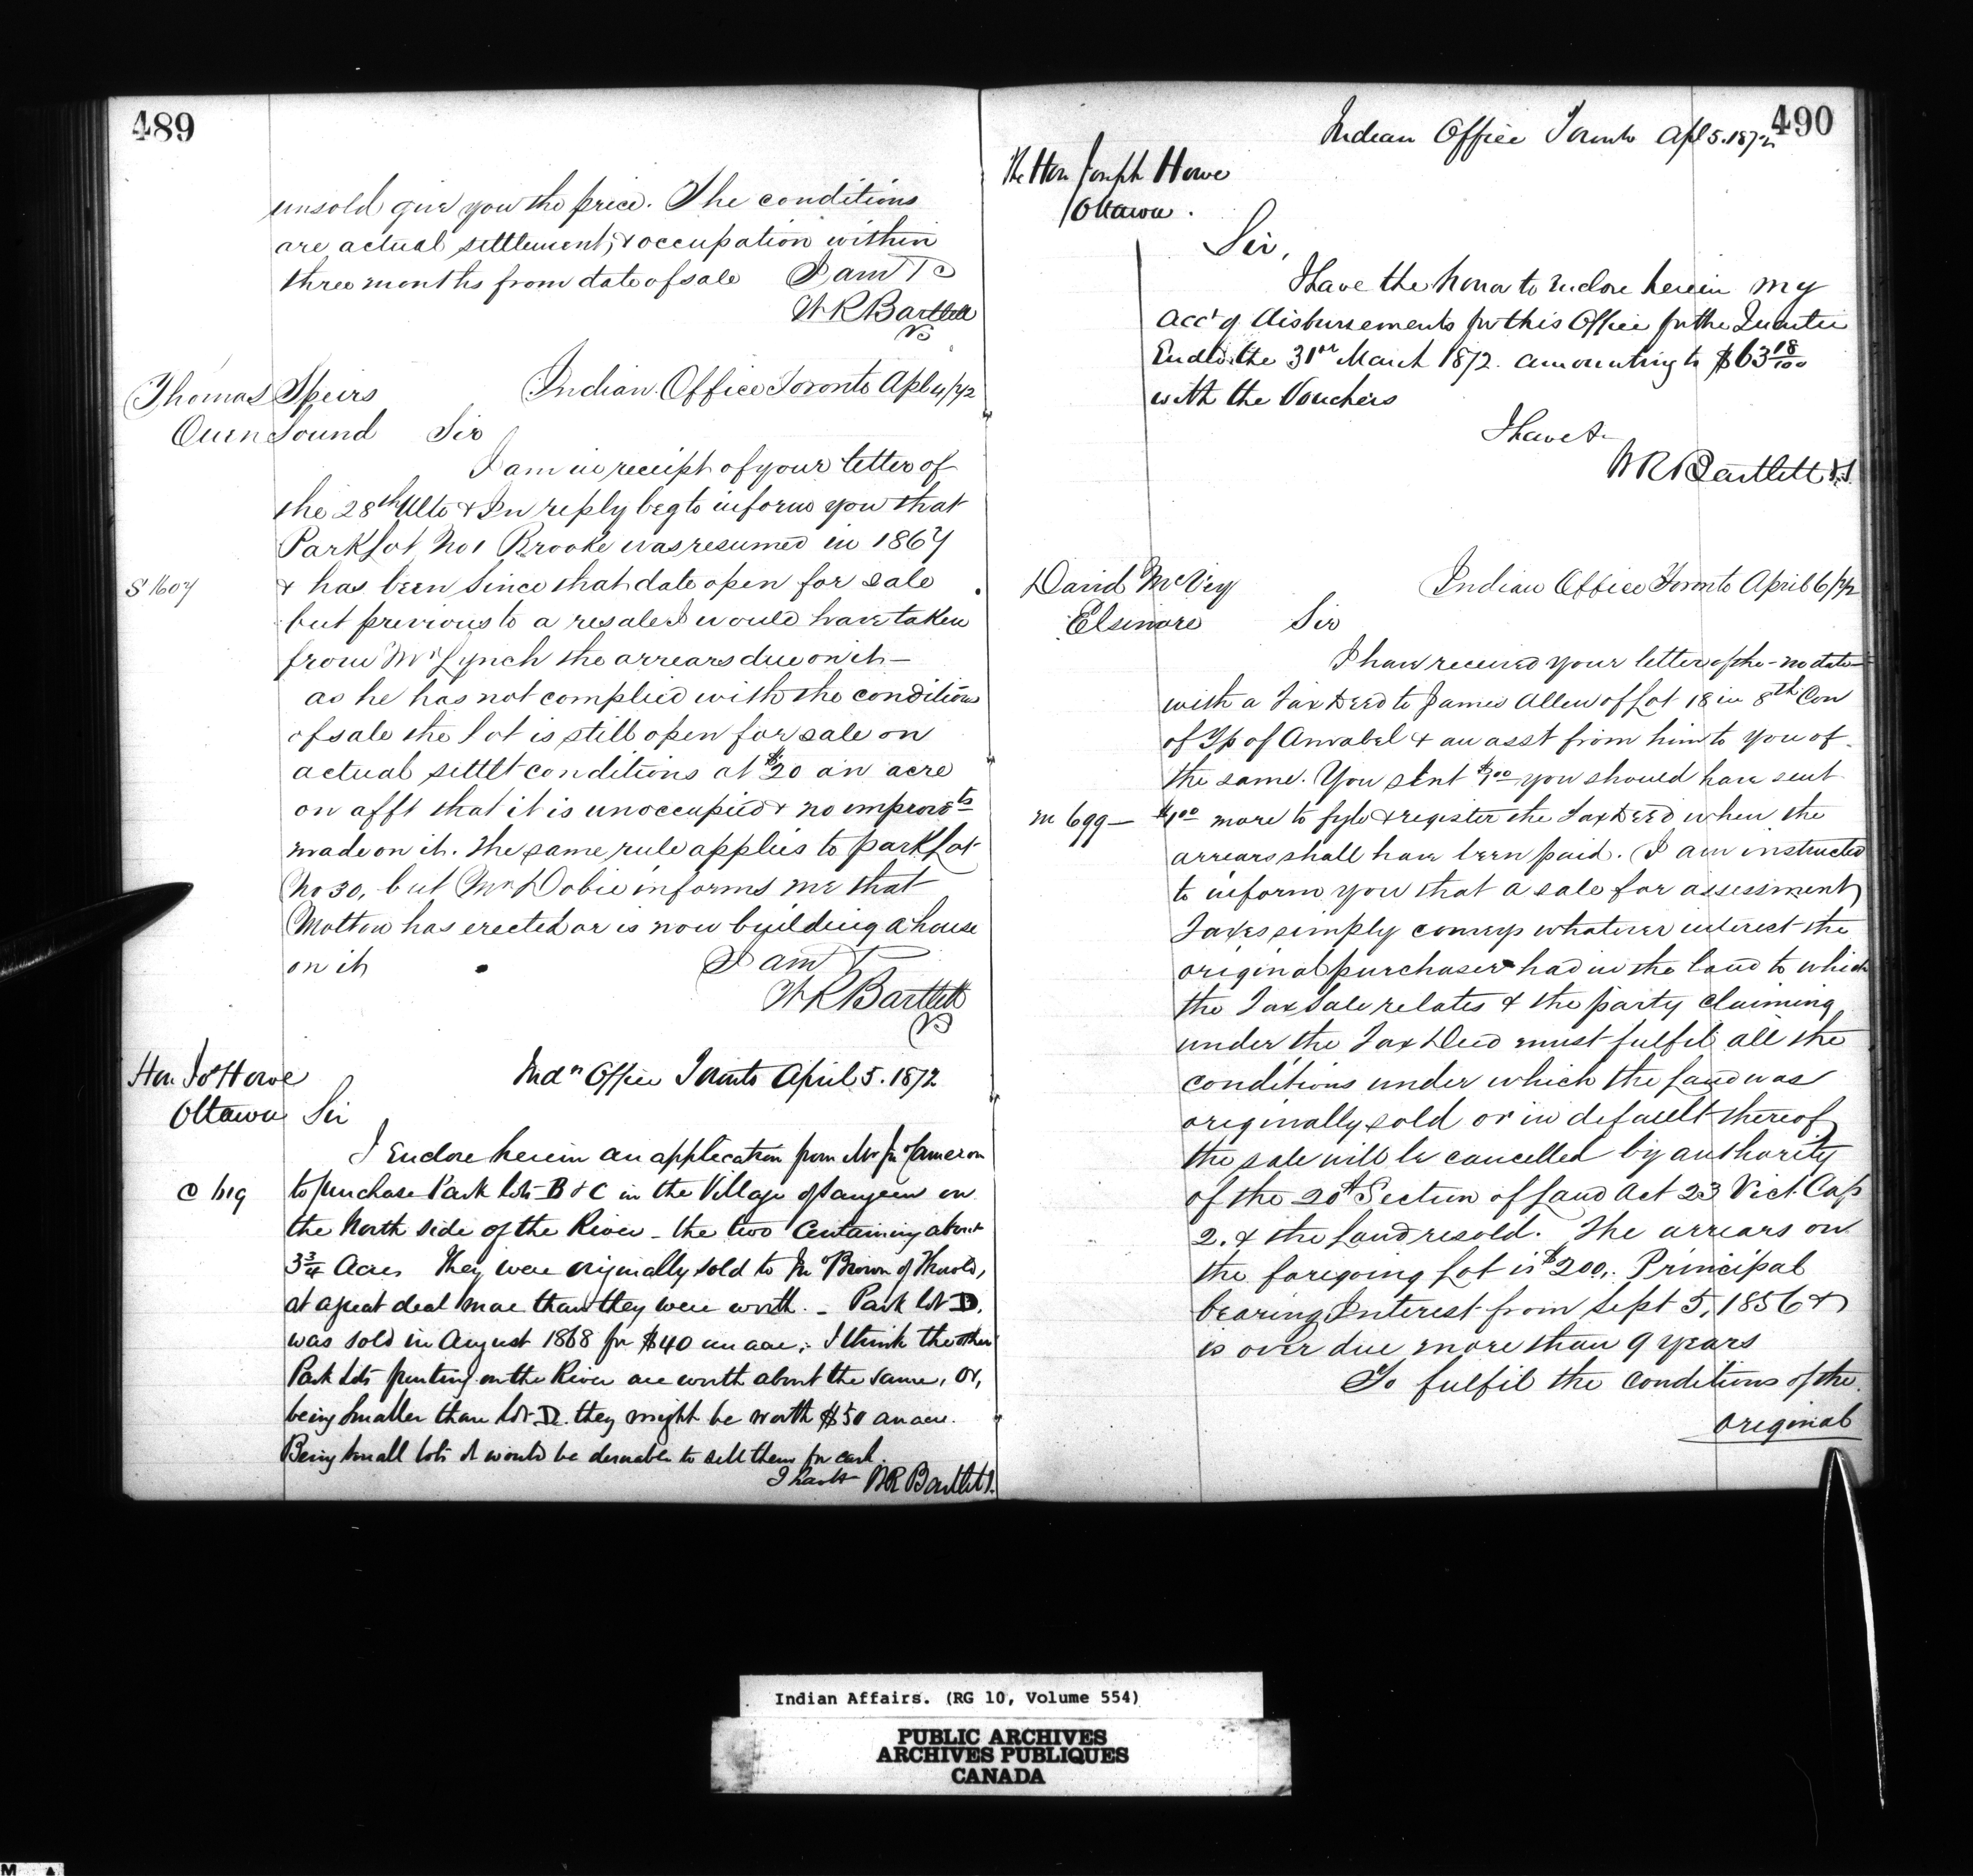 489
unsold give you the price. The conditions
are actual settlement, & occupation within
three months from date of sale I am &c
W R Bartlett
VS
Thomas Speirs Indian Office Toronto Apl 4/72
Owen Sound Sir
I am in receipt of your letter of
the 28th Ulto & In reply beg to inform you that
Park Lot No 1 Brooke was resumed in 1867
S 1607 & has been since that date open for sale
but previous to a resale I would have taken
from Mr Lynch the arrears due on it –
as he has not complied with the conditions
of sale the lot is still open for sale on
actual settlt conditions at $20 an acre
on afft that it is unoccupied & no improvts
made on it. The same rule applies to park Lot
No 30, but Mr Dobie informs me that
has erected or is now building a house
on it I am &
W R Bartlett
VS
Hon Jos Howe Indn Office Toronto April 5. 1872
Ottawa Sir
I Enclose herein an application from Mr Jn Cameron
C 619 to purchase Park lots B & C in the Village of Saugeen on
the North side of the River – the two Containing about
3 3/4 Acres They were originally sold to Jn Brown of Thorold,
at a great deal more than they were worth. – Park lot D.
was sold in August 1868 for $40 an acre; I think the other
Park lots fronting on the River are worth about the same, or,
being smaller than lot D. they might be worth $50 an acre.
Being small lots it would be desirable to sell them for cash.
I have & W R Bartlett
490
Indian Office Toronto Apl 5. 1872
The Hon Joseph Howe
Ottawa.
Sir,
I have the honor to Enclose herein my
acct of disbursements for this Office for the Quarter
Ended the 31st March 1872. amounting to $63 18/100
with the Vouchers
I have &
W R Bartlett V.S.
David McVey Indian Office Toronto April 6/72
Elsinore Sir
I have received your letter of the – no date –
with a Tax Deed to James Allen of Lot 18 in 8th Con
of Tp of Amabel & an asst from him to you of
the same. You sent $1.00 you should have sent
M 699 – $1.00 more to fyle & register the Tax Deed when the
arrears shall have been paid. I am instructed
to inform you that a sale for assessment
Taxes simply conveys whatever interest the
original purchaser had in the land to which
the Tax Sale relates & the party claiming
under the Tax Deed must fulfil all the
conditions under which the Land was
originally sold or in default thereof
the sale will be cancelled by authority
of the 20th Section of Land Act 23 Vict. Cap
2. & the Land resold. The arrears on
the foregoing Lot is $200. Principal
bearing Interest from Sept 5, 1856 &
is over due more than 9 years
To fulfil the conditions of the
original
Indian Affairs. (RG 10, Volume 554)
PUBLIC ARCHIVES
ARCHIVES PUBLIQUES
CANADA